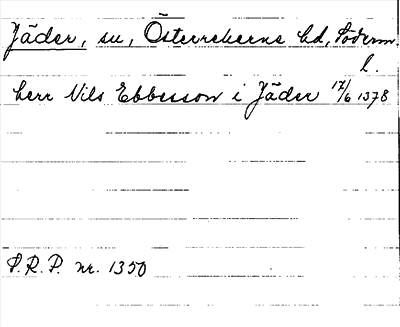 Jäder, sn, Österrekarne hd, Söderm.
l.
herr Nils Ebbesson i Jäder 17/6 1378
S.R.P. nr. 1350